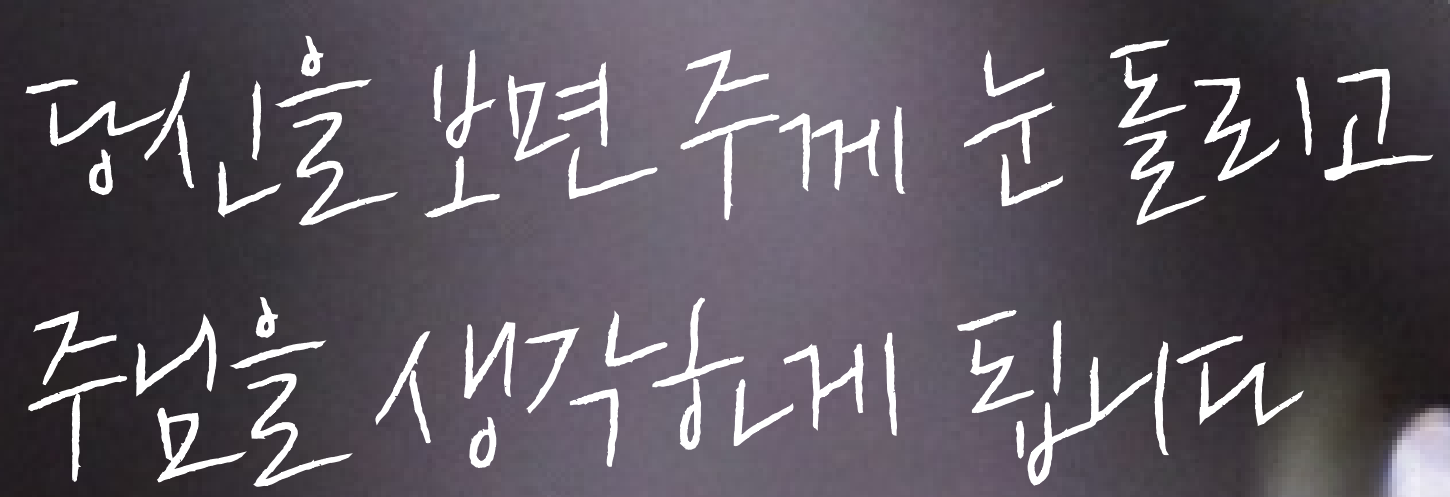 당신을 보면 주께 눈 돌리고
주님을 생각하게 됩니다